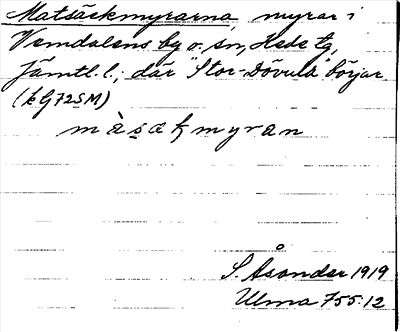 Matsäckmyrarna, myrar i
Vemdalens by o. sn, Hede tg,
Jämtl. l.; där "Stor-Dövuln" börjar
(kG72SM)
màsakmyran
S. Åsander 1919
Ulma 755:12